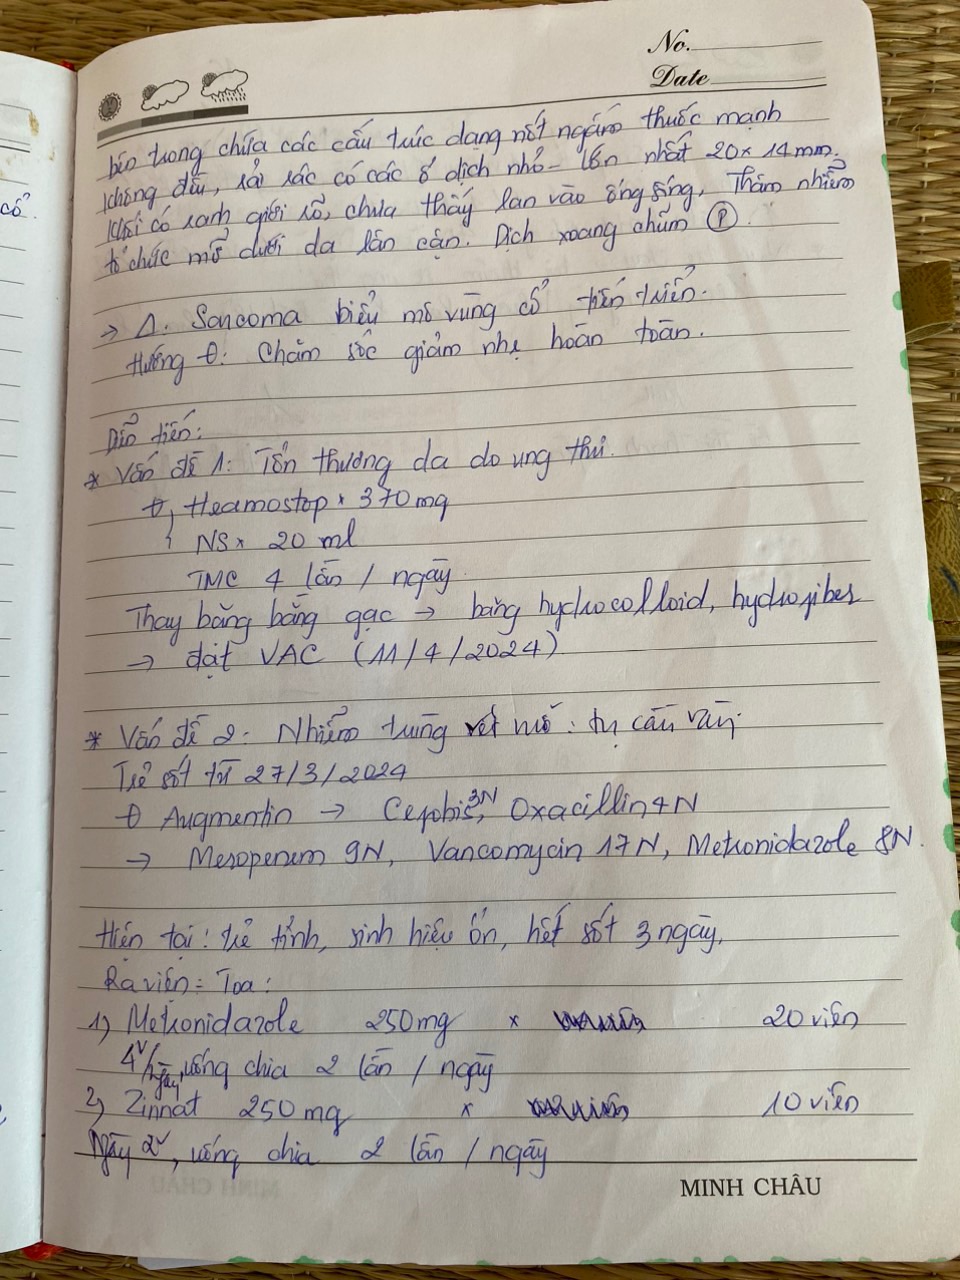 No.
Date
cổ.
bên trong chứa các cấu trúc dạng nốt ngấm thuốc mạnh
không đều, rải rác có các ổ dịch nhỏ - lớn nhất 20 x 14 mm.
Khối có ranh giới rõ, chưa thấy lan vào ống sống, Thâm nhiễm
tổ chức mỡ dưới da lân cận. Dịch xoang chũm (P).
→ Δ. Sarcoma biểu mô vùng cổ tiến triển.
Hướng θ: Chăm sóc giảm nhẹ hoàn toàn.
Diễn tiến:
* Vấn đề 1: Tổn thương da do ung thư.
θ, Heamostop x 370 mg
NS x 20 ml
TMC 4 lần / ngày.
Thay băng bằng gạc → băng hydrocolloid, hydrofiber
→ đặt VAC (11/4/2024)
* Vấn đề 2: Nhiễm trùng vết mổ: tụ cầu vàng.
Trẻ sốt từ 27/3/2024
θ Augmentin → Cefobis 3N, Oxacillin 4N
→ Meropenem 9N, Vancomycin 17N, Metronidazole 8N.
Hiện tại: trẻ tỉnh, sinh hiệu ổn, hết sốt 3 ngày.
Ra viện = Toa:
1) Metronidazole 250mg x 20 viên
4v/ngày, uống chia 2 lần / ngày
2) Zinnat 250 mg x 10 viên
Ngày 2v, uống chia 2 lần / ngày
MINH CHÂU